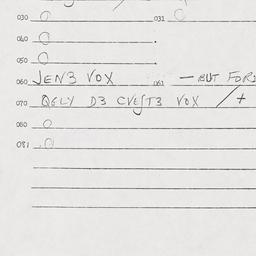 030 O 031 O
040 O
050 O
060 JEN3 VOX 061 — BUT FOR
070 D3 VOX / +
080 O
081 O